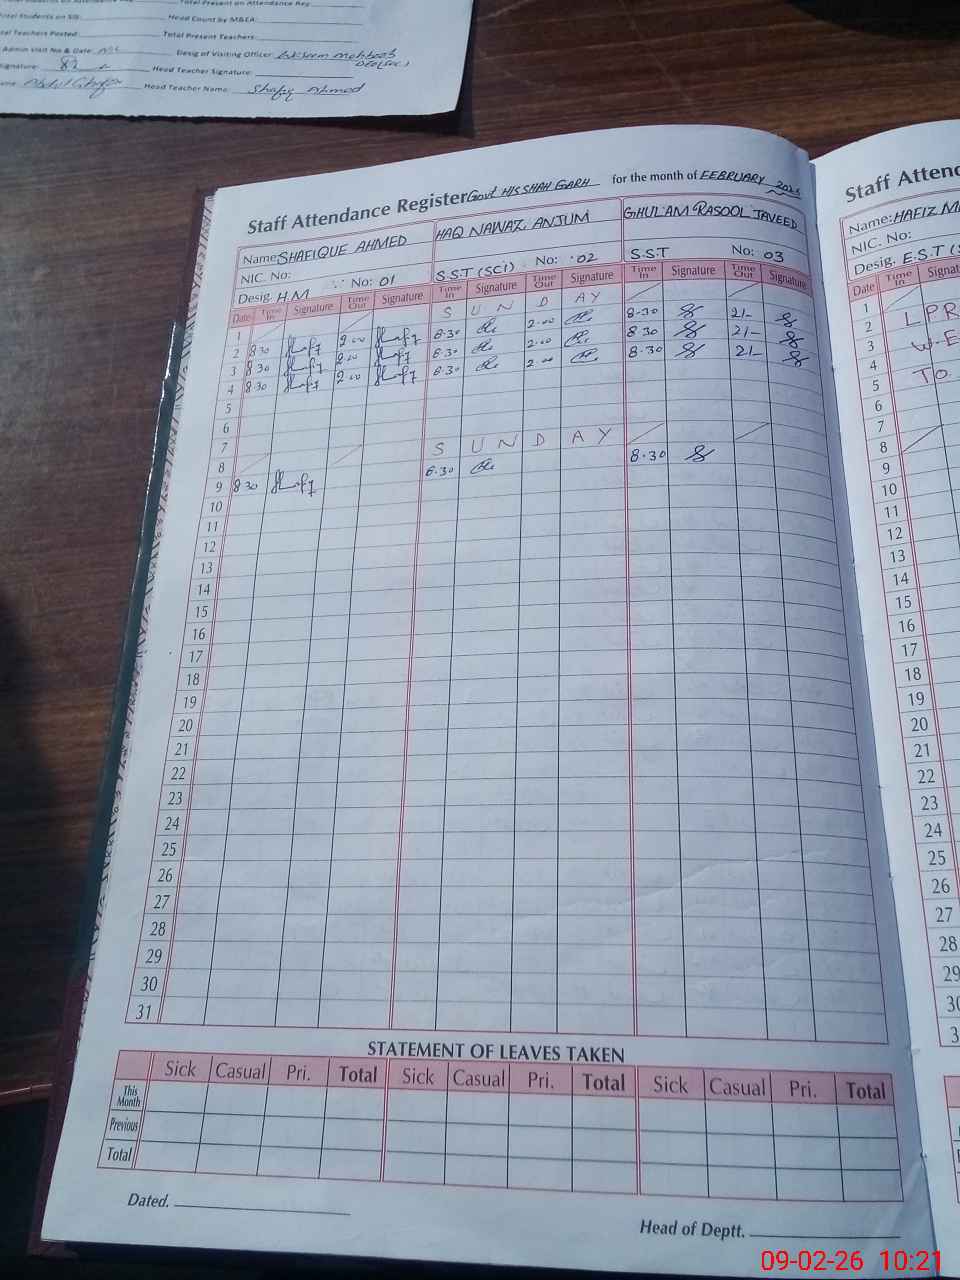 Total Present on Attendance Reg
Total Students on SIS: Head Count by M&EA:
Total Teachers Posted: Total Present Teachers:
Admin Visit No & Date: Desig of Visiting Officer:
Signature: Head Teacher Signature:
Head Teacher Name: Shafiq Ahmed
Staff Attendance Register Govt H/S SHAH GARH for the month of FEBRUARY
Name: SHAFIQUE AHMED HAQ NAWAZ ANJUM GHULAM RASOOL JAVEED
NIC. No:
Desig. H.M No: 01 S.S.T (SCI) No: 02 S.S.T No: 03
Date Time In Signature Time Out Signature Time In Signature Time Out Signature Time In Signature Time Out Signature
1 S U N D A Y
2 8 30 2.00 8.30 2.00 8.30 2/-
3 8 30 2.00 8.30 2.00 8 30 2/-
4 8 30 2.00 8.30 2.00 8.30 2/-
5
6
7
8 S U N D A Y
9 8 30 8.30 8.30
10
11
12
13
14
15
16
17
18
19
20
21
22
23
24
25
26
27
28
29
30
31
STATEMENT OF LEAVES TAKEN
Sick Casual Pri. Total Sick Casual Pri. Total Sick Casual Pri. Total
This Month
Previous
Total
Dated.
Head of Deptt.
Staff Atten
Name: HAFIZ M
NIC. No:
Desig. E.S.T (S
Date Time In Signat
1
2 L P R
3
4 W.E
5 TO
6
7
8
9
10
11
12
13
14
15
16
17
18
19
20
21
22
23
24
25
26
27
28
29
30
3
09-02-26 10:21